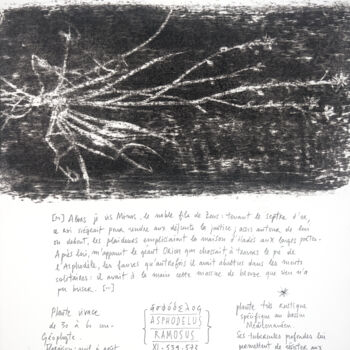 [...] Alors je vis Minos, le noble fils de Zeus : tenant le sceptre d'or,
ce roi siégeait pour rendre aux défunts la justice ; assis autour de lui
ou debout, les plaideurs emplissaient la maison d'Hadès aux larges portes.
Après lui, m'apparut le géant Orion qui chassait, à travers le pré de
l'Asphodèle, les fauves qu'autrefois il avait abattus dans les monts
solitaires : il avait à la main cette massue de bronze que rien n'a
pu briser. [...]
Plante vivace
de 30 à 80 cm -
Géophyte.
ἀσφόδελος
ASPHODELUS
RAMOSUS
XI - 539-575
plante très rustique
spécifique au bassin
Méditerranéen.
Ses tubercules profondes lui
permettent de résister aux